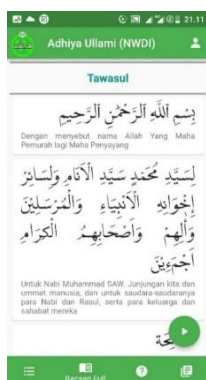 21.11
Adhiya Ullami (NWDI)
Tawasul
بِسْمِ اللَّهِ الرَّحْمٰنِ الرَّحِيْمِ
Dengan menyebut nama Allah Yang Maha
Pemurah lagi Maha Penyayang
لِسَيِّدِ مُحَمَّدٍ سَيِّدِ الْأَنَامِ وَلِسَائِرِ
إِخْوَانِهِ الْأَنْبِيَاءِ وَالْمُرْسَلِيْنَ
وَآلِهِمْ وَأَصْحَابِهِمُ الْكِرَامِ
أَجْمَعِيْنَ
Untuk Nabi Muhammad SAW. Junjungan kita dan
ummat manusia, dan untuk saudara-saudaranya
para Nabi dan Rasul, serta para keluarga dan
sahabat mereka
Bacaan Full